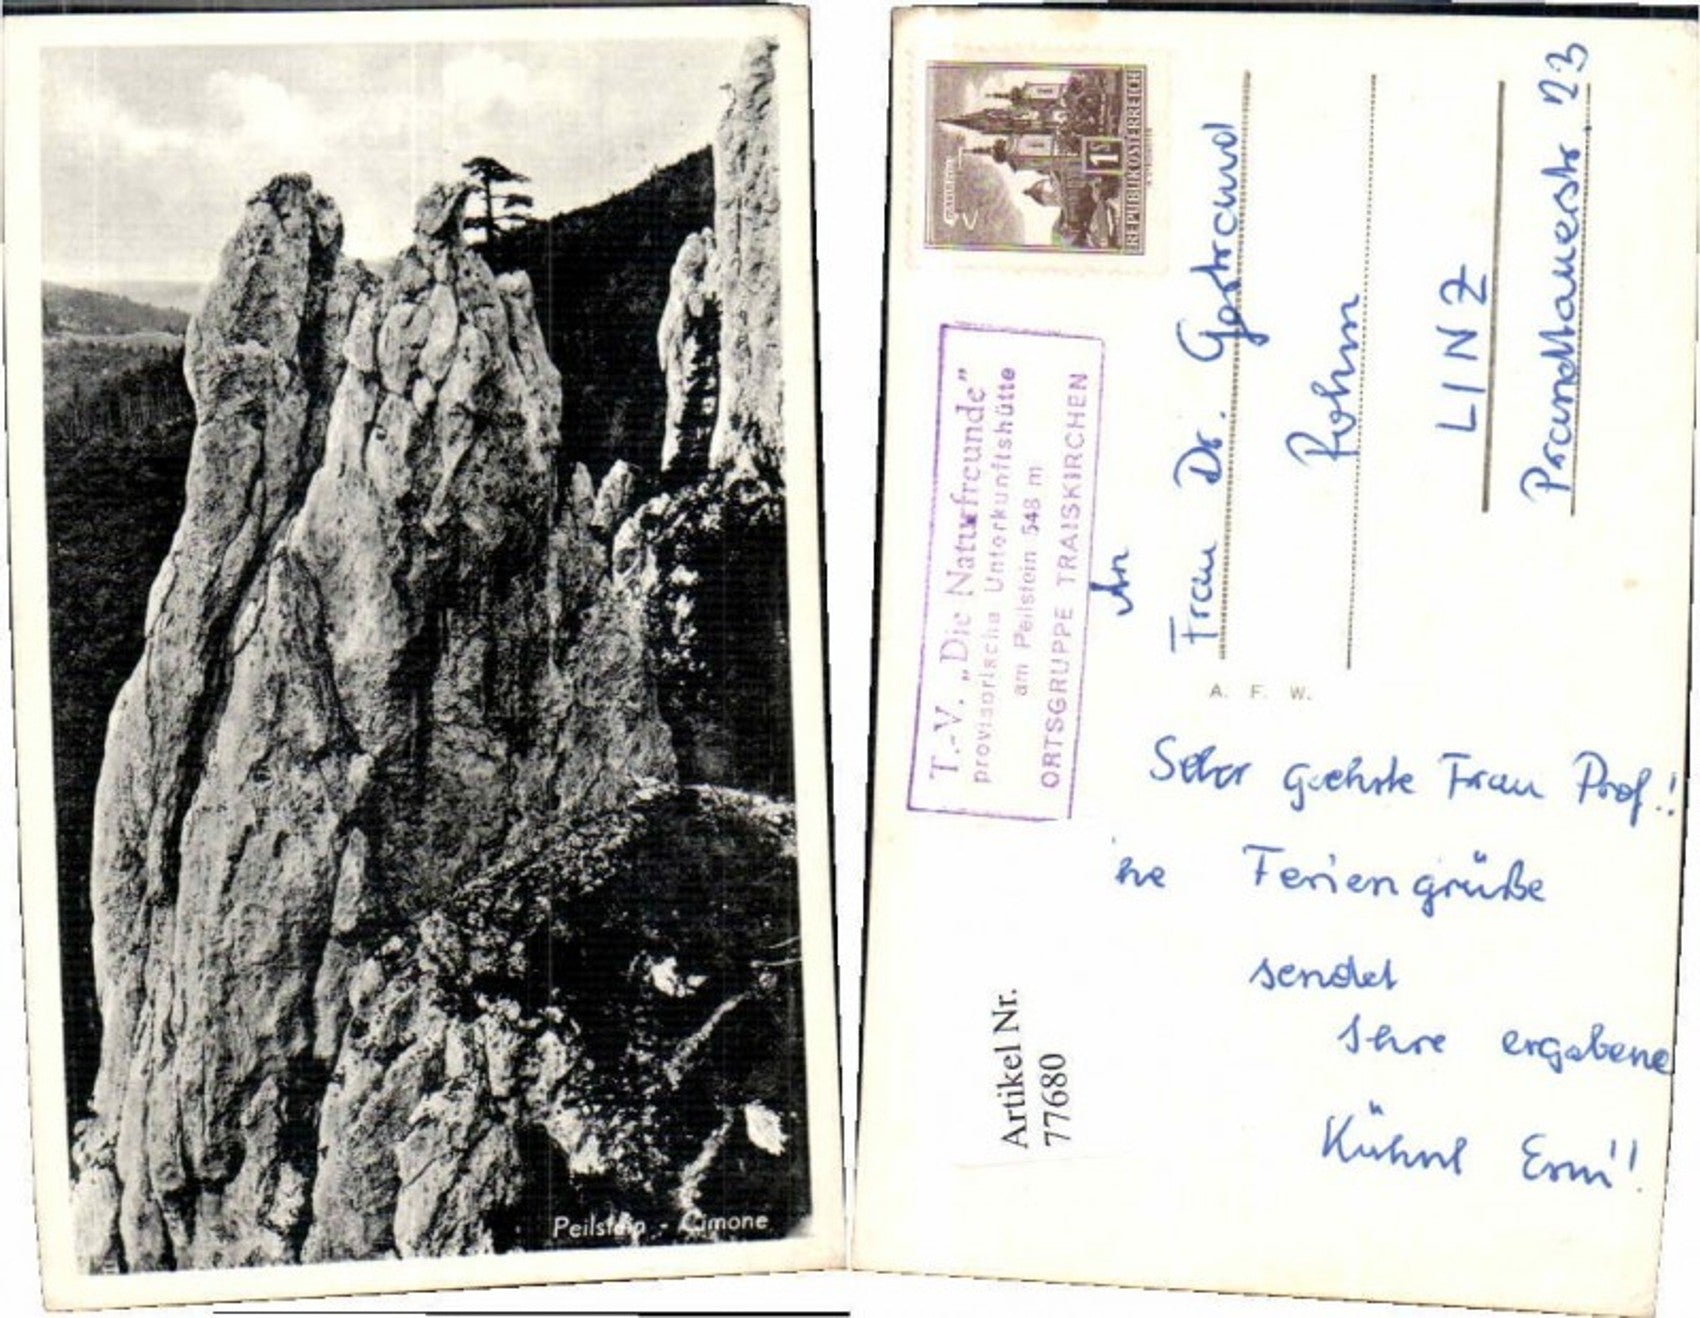 Peilstein - Cimone
REPUBLIK ÖSTERREICH
1S
T.-V. „Die Naturfreunde"
provisorische Unterkunftshütte
am Peilstein 548 m
ORTSGRUPPE TRAISKIRCHEN
An
Frau Dr. Gertraud
Rohm
LINZ
Prandtauerstr. 23
A. F. W.
Sehr geehrte Frau Prof.!
Feriengrüße
sendet
Ihre ergebene
Kühnl Erni!
Artikel Nr.
77680